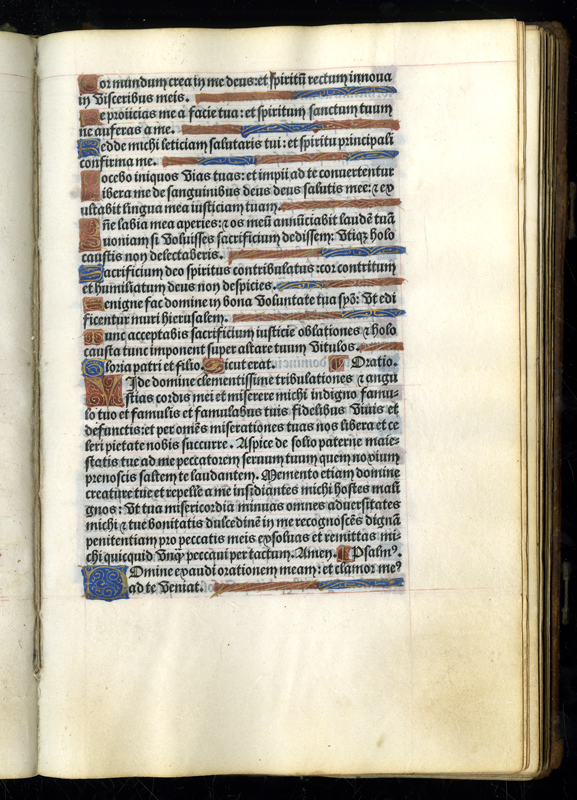 Cor mundum crea in me deus: et spiritū rectum innoua
in visceribus meis.
Ne proiicias me a facie tua: et spiritum sanctum tuum
ne auferas a me.
Redde michi leticiam salutaris tui: et spiritu principali
confirma me.
Docebo iniquos vias tuas: et impii ad te conuertentur
Libera me de sanguinibus deus deus salutis mee: ⁊ ex
ultabit lingua mea iusticiam tuam.
Dñe labia mea aperies: ⁊ os meū annūciabit laudē tuā
Quoniam si voluisses sacrificium dedissem: vtiqꝫ holo
caustis non delectaberis.
Sacrificium deo spiritus contribulatus: cor contritum
et humiliatum deus non despicies.
Benigne fac domine in bona voluntate tua syō: vt edi
ficentur muri hierusalem.
Tunc acceptabis sacrificium iusticie oblationes ⁊ holo
causta tunc imponent super altare tuum vitulos.
Gloria patri et filio. Sicut erat. Oratio.
Vide domine clementissime tribulationes ⁊ angu
stias cordis mei et miserere michi indigno famu-
lo tuo et famulis et famulabus tuis fidelibus viuis et
defunctis: et per omēs miserationes tuas nos libera et ce
leri pietate nobis succurre. Aspice de solio paterne maie-
statis tue ad me peccatorem seruum tuum quem noxium
prenoscis saltem te laudantem. Memento etiam domine
creature tue et repelle a me insidiantes michi hostes mali
gnos: vt tua misericordia minuas omnes aduersitates
michi ⁊ tue bonitatis dulcedinē in me recognoscēs dignā
penitentiam pro peccatis meis exsoluas et remittas mi-
chi quicquid vnq̃ peccaui per tactum. Amen. Psalmꝰ.
Domine exaudi orationem meam: et clamor meꝰ
ad te veniat.